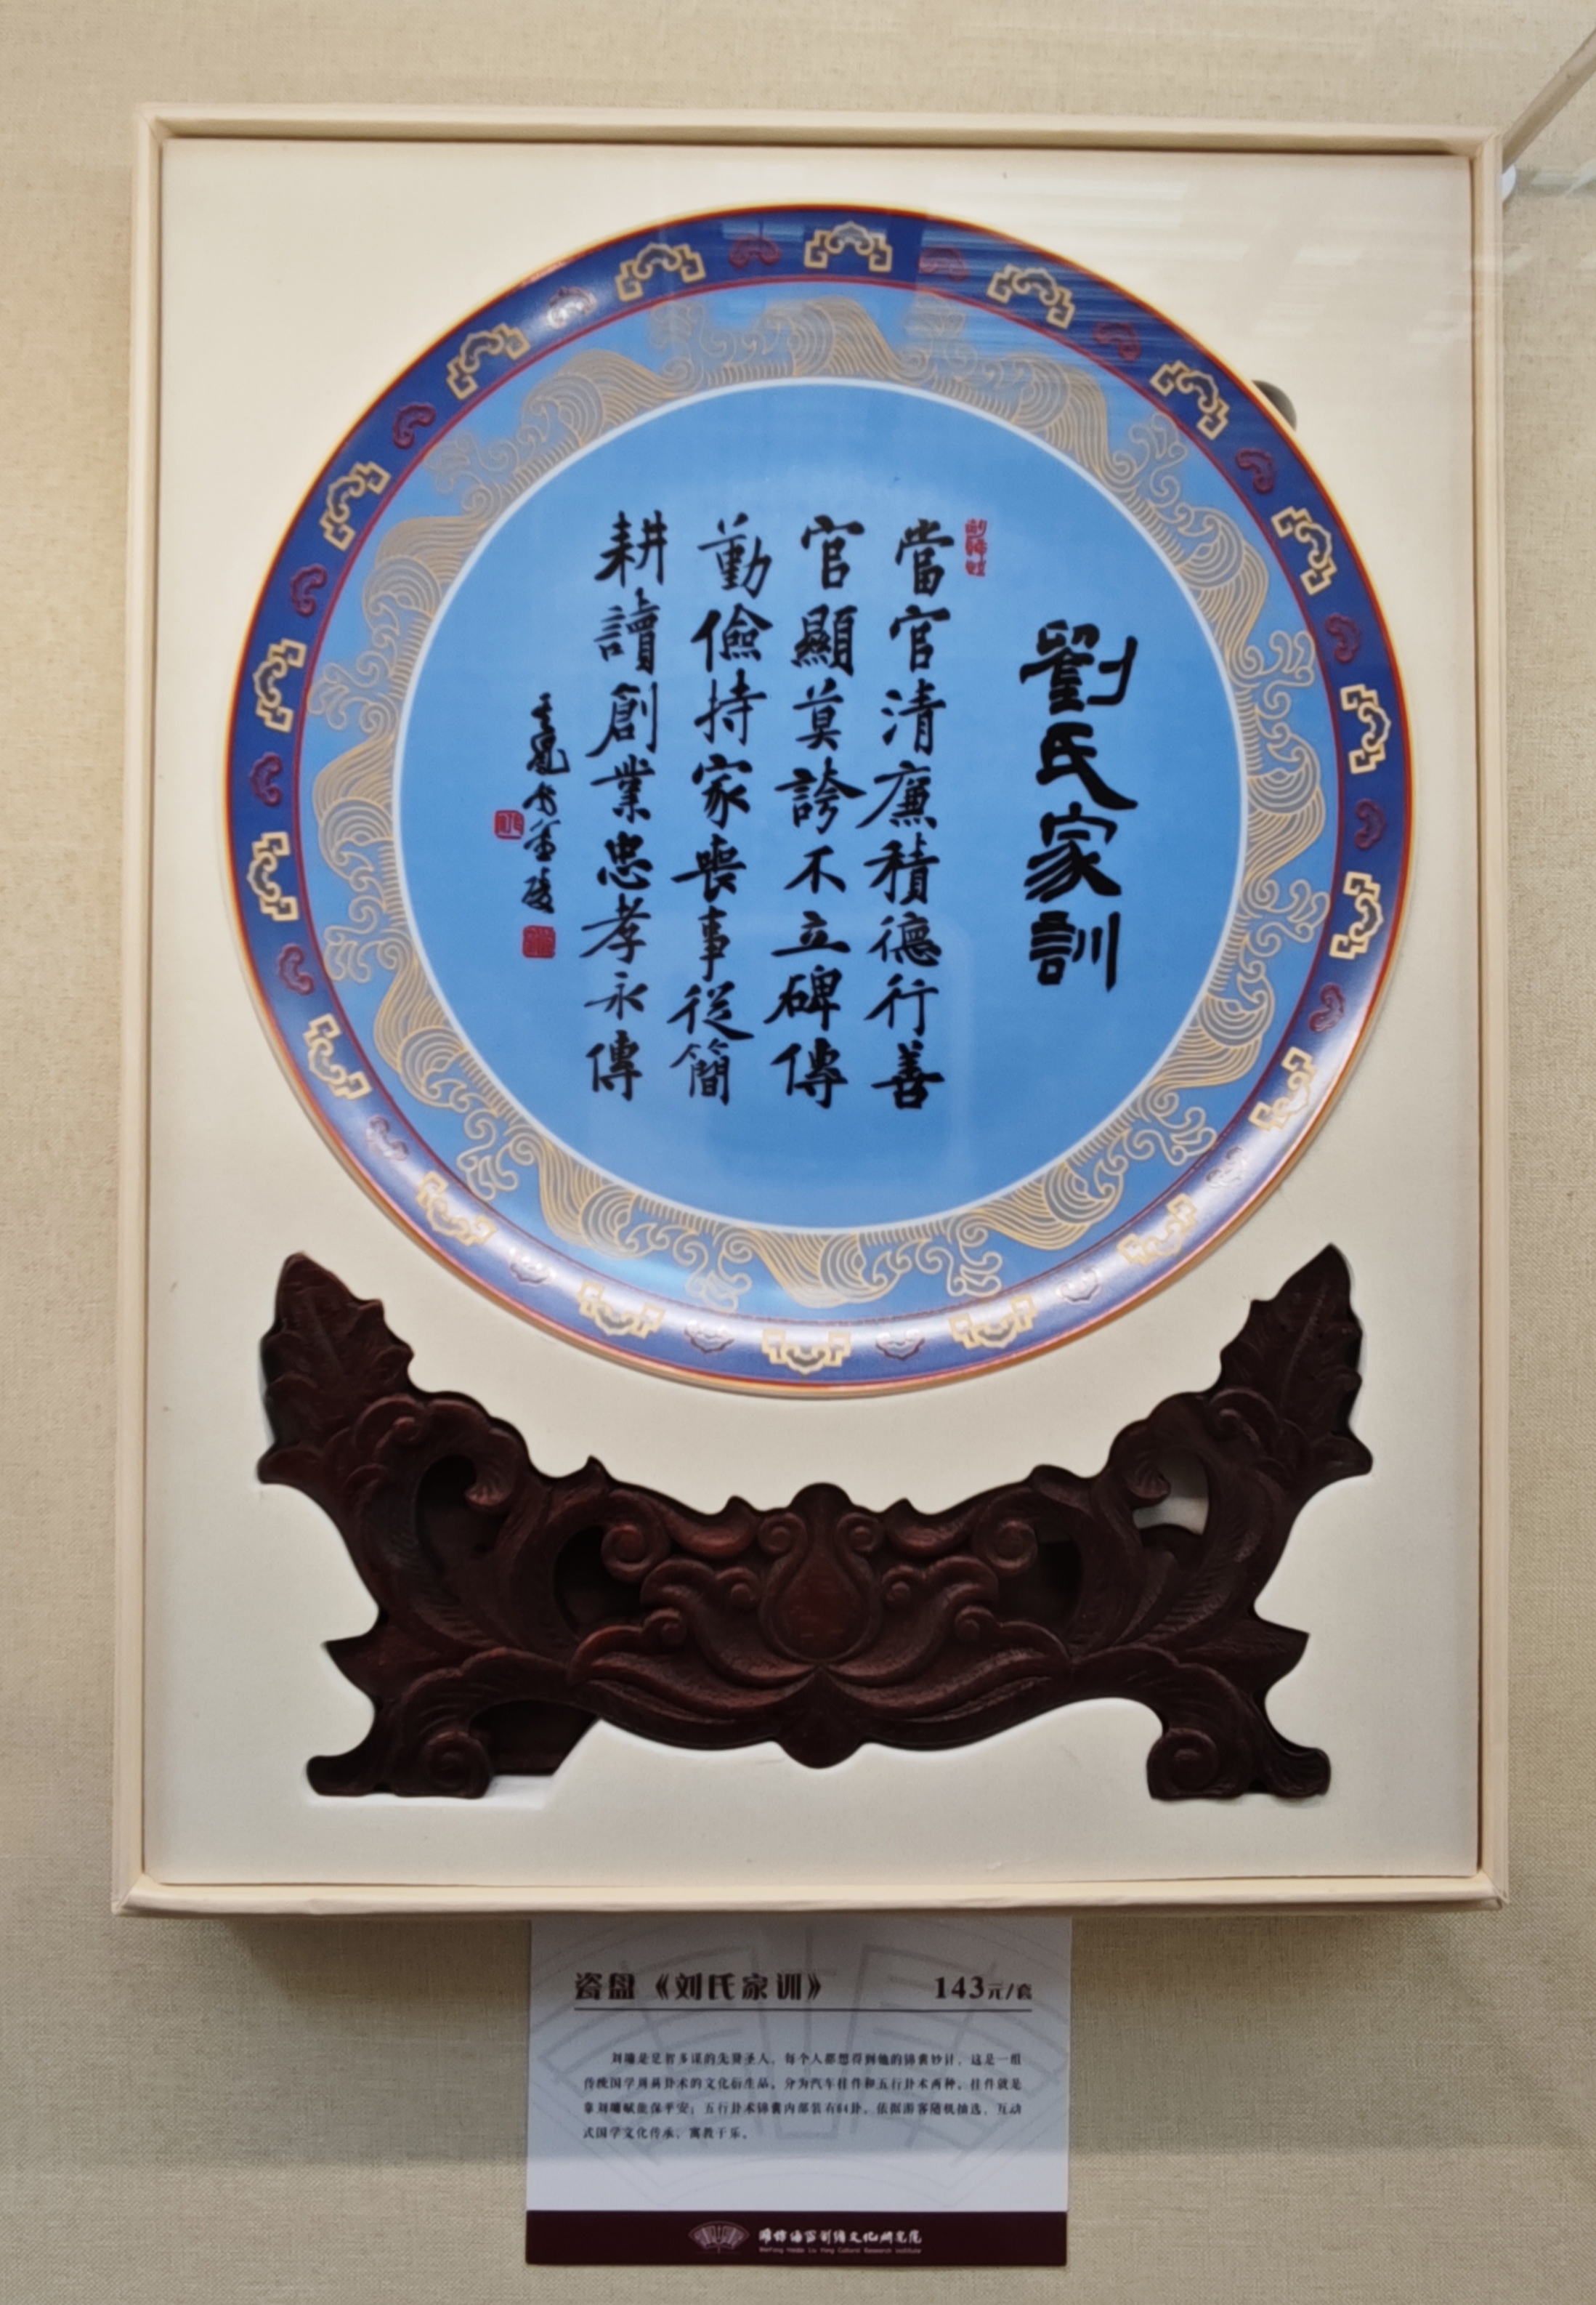 劉氏家訓
當官清廉積德行善
官顯莫誇不立碑傳
勤儉持家喪事從簡
耕讀創業忠孝永傳
瓷盘《刘氏家训》 143元/套
刘墉是足智多谋的先贤圣人，每个人都想得到他的锦囊妙计，这是一组
传统国学周易卦术的文化衍生品，分为汽车挂件和五行卦术两种，挂件就是
靠刘墉赋能保平安；五行卦术锦囊内部装有64卦，依据游客随机抽选，互动
式国学文化传承，寓教于乐。
潍坊海岱刘墉文化研究院
Weifang Haidai Liu Yong Cultural Research Institute